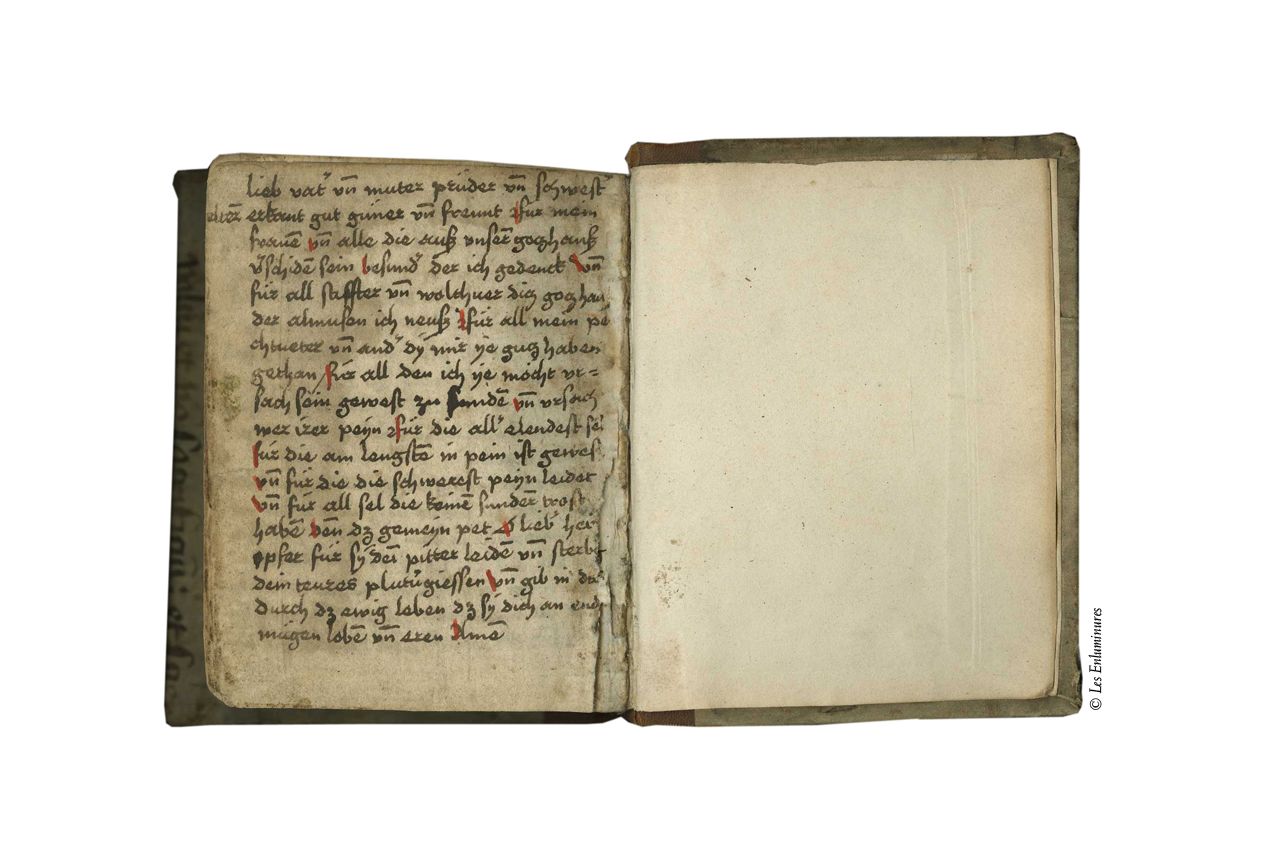 lieb vat' vn̄ muter prüder vn̄ schwest'
erkant gut güner vn̄ frewnt für mein
frauē vn̄ alle die auß vnser̄ goczhauß
v'schidē sein besund' der ich gedenck vn̄
für all stiffter vn̄ wolthuer dicz goczhau
der almusen ich neuß für all mein pe
chtueter vn̄ and' dÿ mir ÿe gucz haben
gethan für all den ich ÿe möcht vr=
sach sein gewest zu sundē vn̄ vrsach
wer irer peyn für die all' elendest sel
für die am lengstē in pein ist gewes
vn̄ für die die schwerest peyn leidet
vn̄ für all sel die keinē sunder̄ trost
habē den̄ dz gemeyn pet O lieb' her
opfer für sÿ dein̄ pitter leidē vn̄ sterbe
dein teures plutu'giessen vn̄ gib in
durch dz ewig leben dz sÿ dich an end
mügen lobē vn̄ eren Amē
© Les Enluminures